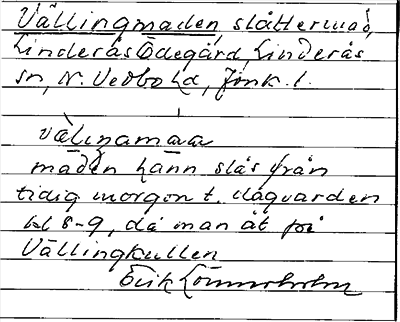 Vällingmaden, slåttermad,
Linderås Ödegård, Linderås
sn, N. Vedbo hd, Jönk. l.
välinamaa
maden hann slås från
tidig morgon t. dagvarden
kl 8-9, då man åt på
Vällingkullen
Erik